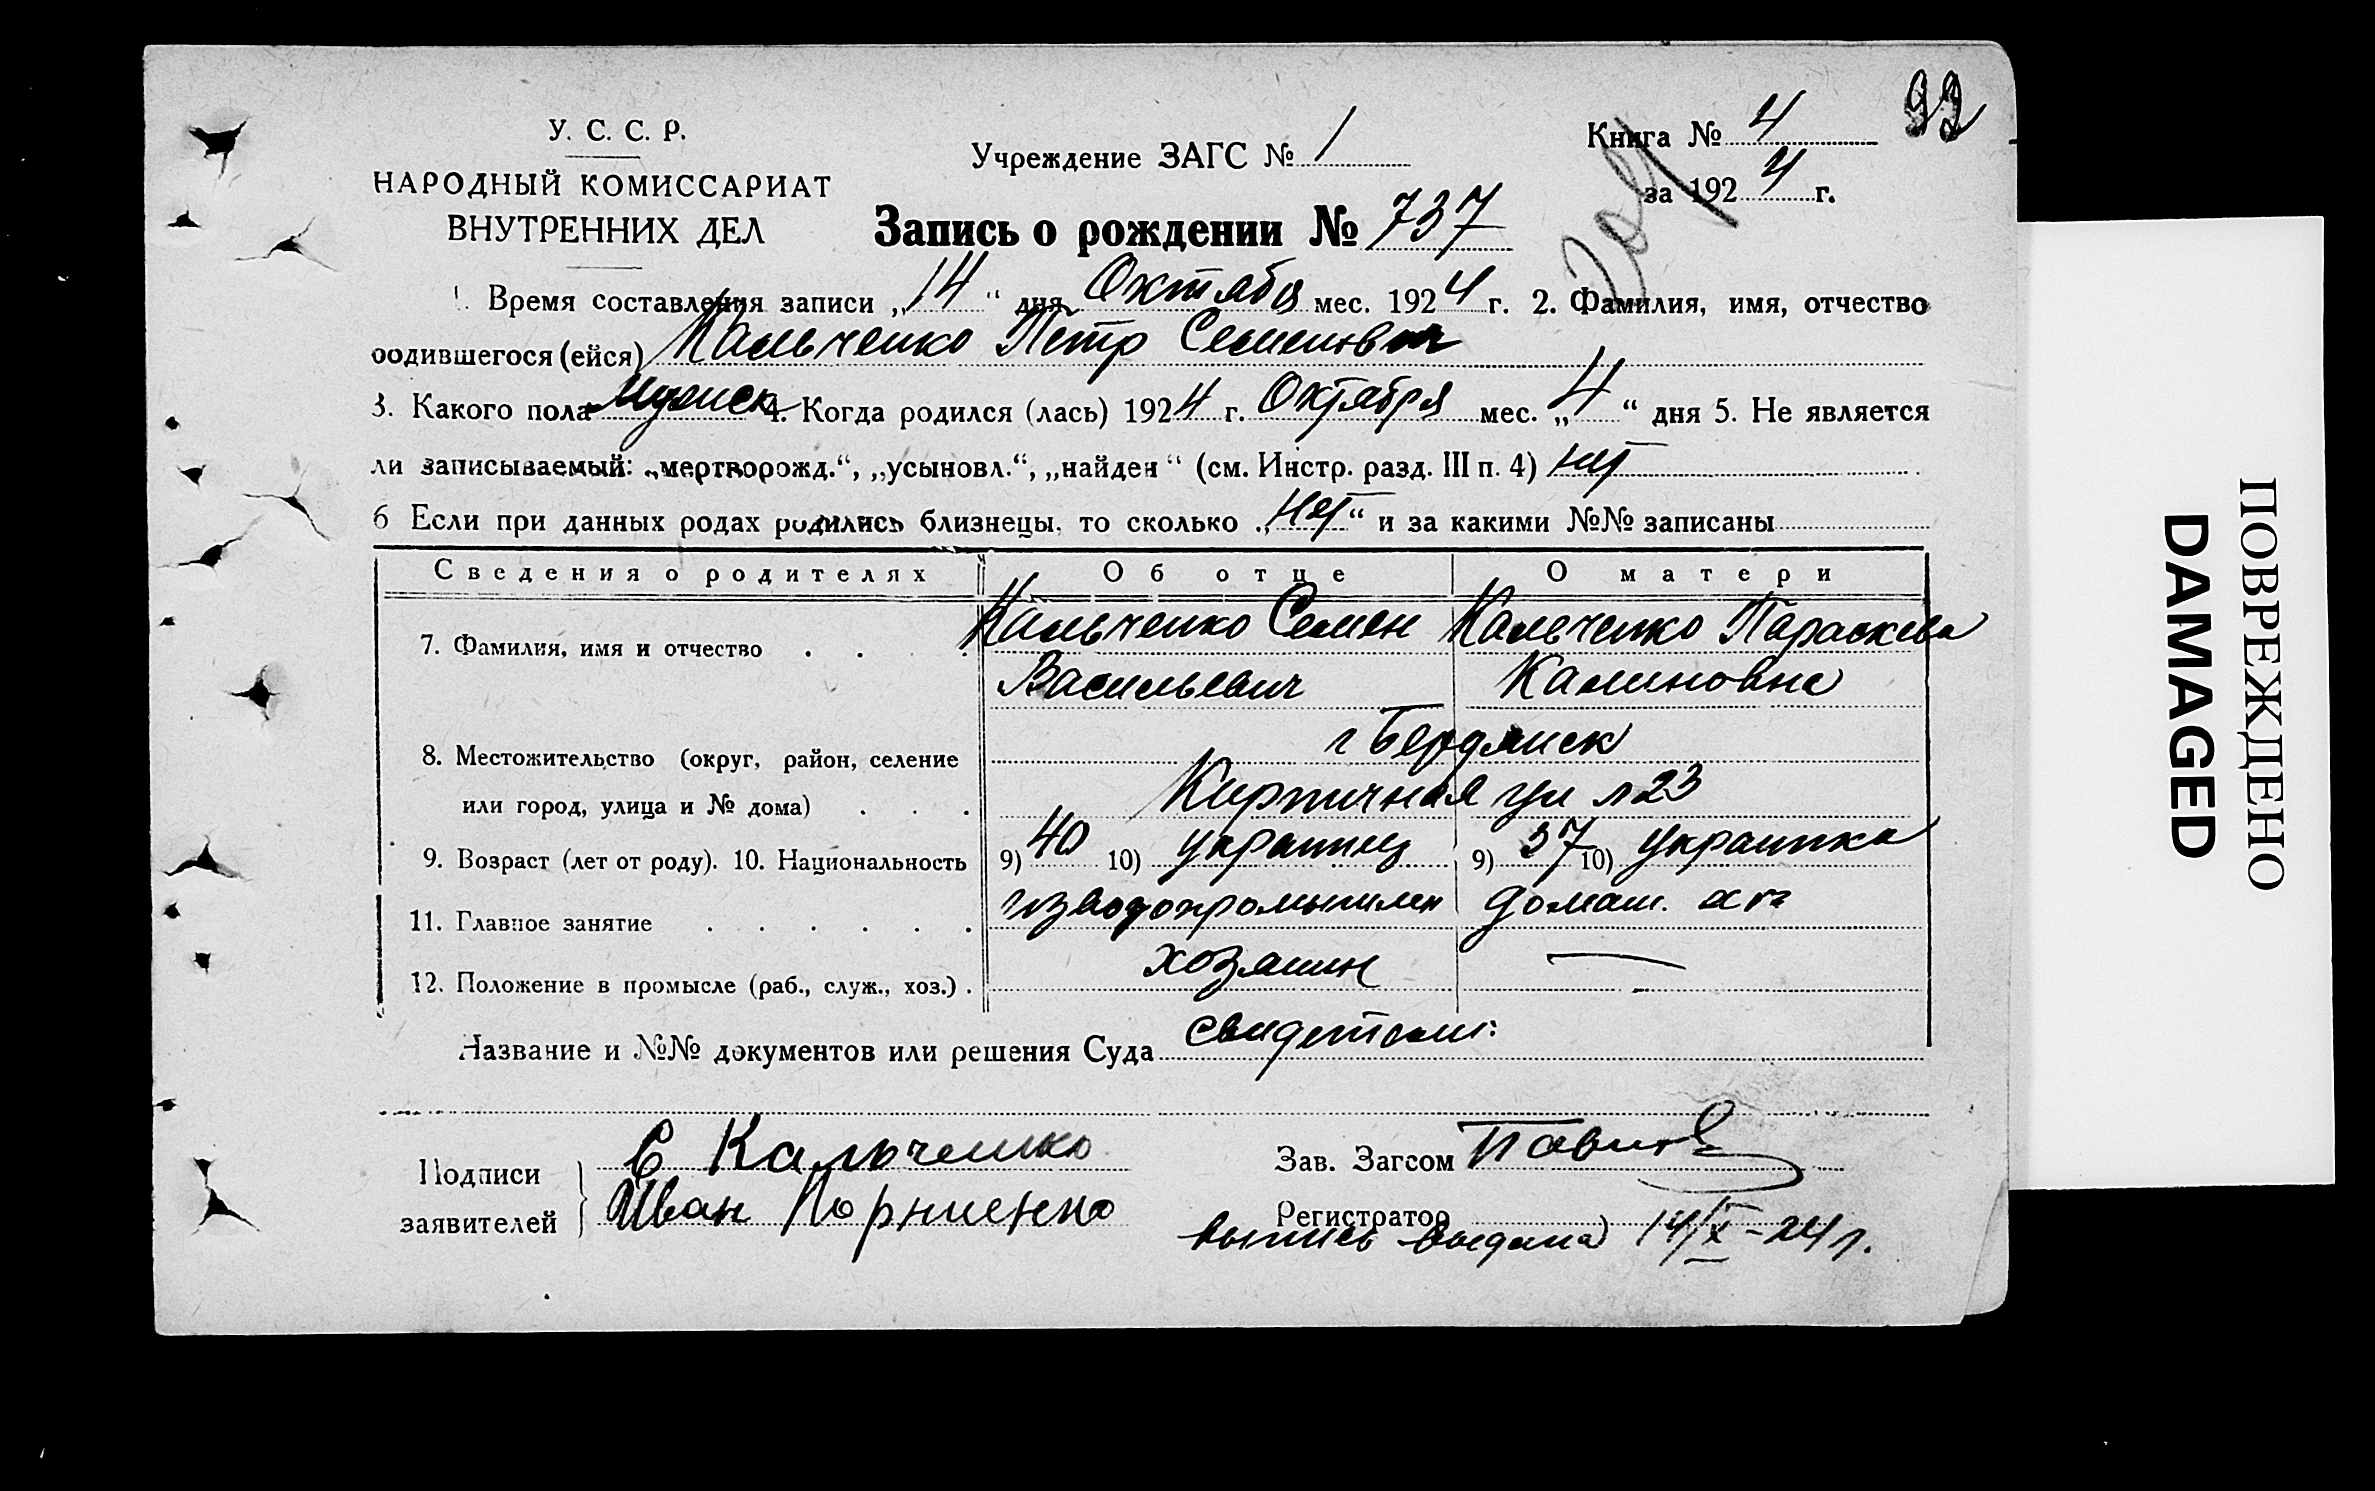 92
У. С. С. Р.
НАРОДНЫЙ КОМИССАРИАТ
ВНУТРЕННИХ ДЕЛ
Учреждение ЗАГС № 1
Книга № 4
за 1924 г.
Запись о рождении № 737
1. Время составления записи „14“ дня Октября мес. 1924 г. 2. Фамилия, имя, отчество
родившегося (ейся) Кальченко Петр Семенович
3. Какого пола Мужск 4. Когда родился (лась) 1924 г. Октября мес. „4“ дня 5. Не является
ли записываемый: „мертворожд.“, „усыновл.“, „найден“ (см. Инстр. разд. III п. 4) нет
6 Если при данных родах родились близнецы, то сколько „нет“ и за какими №№ записаны
Сведения о родителях Об отце О матери
7. Фамилия, имя и отчество Кальченко Семен Кальченко Параскева
Васильевич Калиновна
8. Местожительство (округ, район, селение г Бердянск
или город, улица и № дома) Кирпичная ул 23
9. Возраст (лет от роду). 10. Национальность 9) 40 10) украинец 9) 37 10) украинка
11. Главное занятие домаш. хоз
12. Положение в промысле (раб., служ., хоз.) хозяин —
Название и №№ документов или решения Суда свидетели:
Подписи заявителей
С Кальченко
Иван Корниенко
Зав. Загсом
Регистратор
выпись выдана 14/X-24 г.
ПОВРЕЖДЕНО
DAMAGED